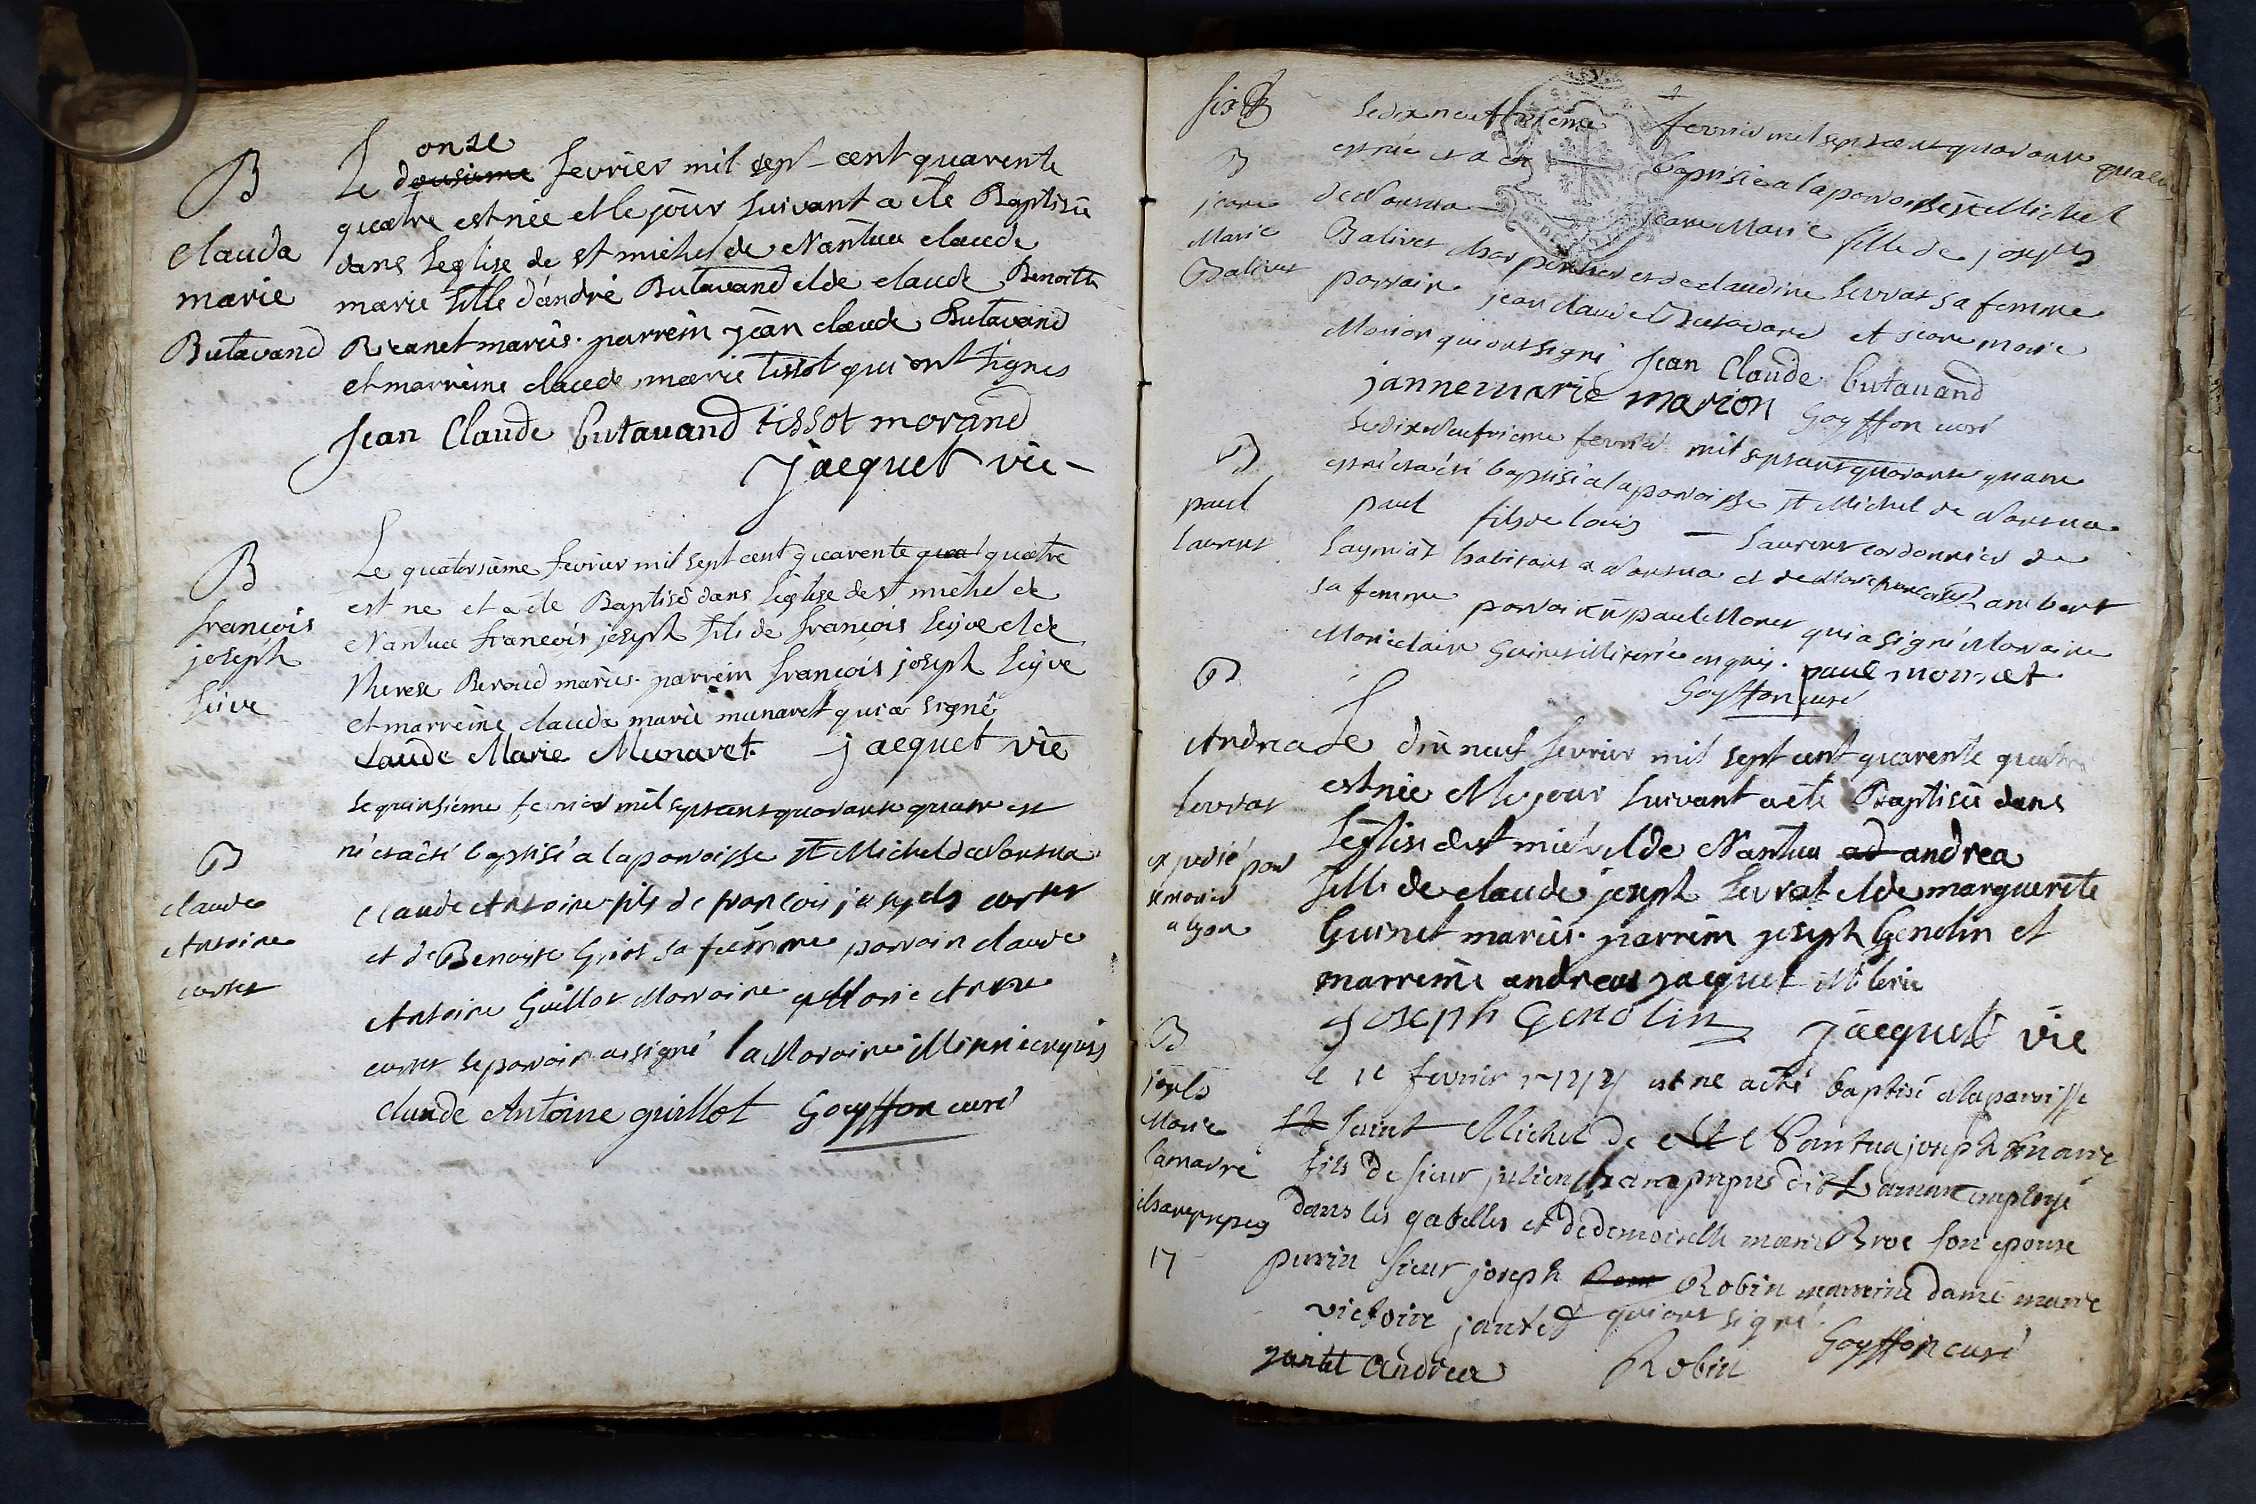 B
Clauda
marie
Butavand
onze
Le dousieme fevrier mil sept cent quarente
quatre est née et le jour suivant a été Baptisée
dans l'eglise de st michel de Nantua claude
marie fille d'andré Butavand et de claude Benoitte
Ricanet mariés. parrein jean claude Butavand
et marreine claude marie tissot qui ont signes
Jean Claude butavand tissot morand
jacquet vic
B
françois
joseph
Leive
Le quatorsième fevrier mil sept cent quarente qua quatre
est ne et a été Baptisé dans l'église de st michel de
Nantua francois joseph fils de françois Leyve et de
therese Beroud mariés. parrein françois joseph Leyve
et marreine clauda marie munaret qui a signé
claude Marie Munaret jacquet vic
B
claude
Antoine
cortet
le quinsième fevrier mil sept cent quarante quatre est
né et a été baptisé a la parroisse st Michel de Nantua
claude Antoine fils de françois joseph cortet
et de Benoite Griot sa femme parrain claude
Antoine Guillot Marraine Marie Anne
cortet le parrain a signé la Marraine illiterée enquis
claude Antoine guillot Goyffon curé
six
B
jeane
Marie
Balivet
Le dix neufvième fevrier mil sept cent quarante quatre
est née et a été baptisée a la parroisse st Michel
de Nantua jeane Marie fille de joseph
Balivet charpentier et de claudine Levrat sa femme
parrain jean claude Butavand et jeane marie
Marion qui ont signé Jean Claude butavand
janne marie marion Goyffon curé
B
paul
laurent
Le dix neufvieme fevrier mil sept cent quarante quatre
est né et a été baptisé a la parroisse st Michel de Nantua
paul fils de louis laurent cordonnier de
Leyment habitant a Nantua et de Lambert
sa femme parrain paul Monet qui a signé Marraine
Marie claire illiterée enquis. paul monnet
Goyffon curé
B
Andrea
levrat
expedié pour
a lyon
Le dix neuf fevrier mil sept cent quarente quatre
est née et le jour suivant a été Baptisée dans
l'eglise de st michel de Nantua ad andrea
fille de claude joseph Levrat et de marguerite
Guinet mariés. parrein joseph Genolin et
marreine andrea jacquet illiterée
joseph Genolin jacquet vic
B
joseph
Marie
lamarre
champrepus
17
le 16 fevrier 1744 est ne a été baptisé a la paroisse
saint Michel de Nantua joseph marie
fils de sieur julien champrepus dit Lamare employé
dans les gabelles et de demoiselle marie Broe son epouse
parrin sieur joseph Robin marreine dame marie
victoire jantet qui ont signé
jantet Andrea Robin Goyffon curé